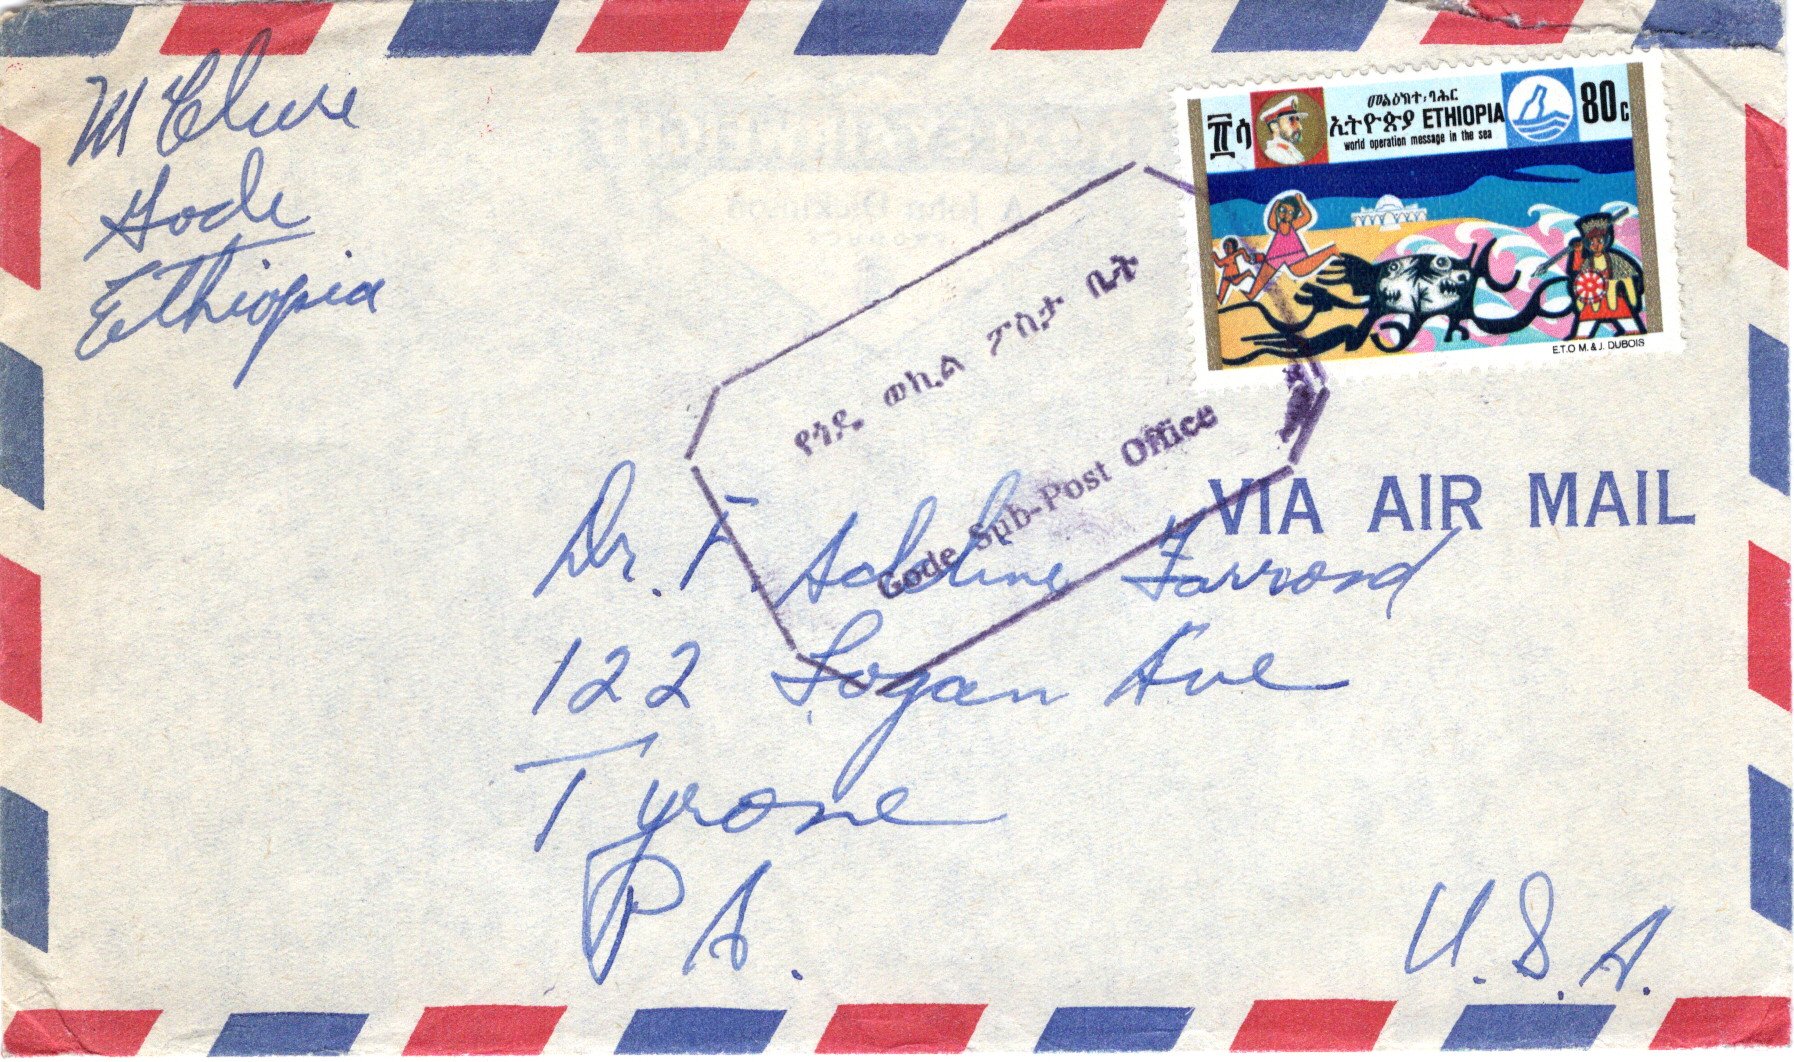 McClure
Gode
Ethiopia
፹ሳ
መልዕክተ፡ባሕር
ኢትዮጵያ ETHIOPIA
world operation message in the sea
80c
E.T.O M.& J. DUBOIS
የጎዴ ወኪል ፖስታ ቤት
Gode Sub-Post Office
VIA AIR MAIL
Dr. F. Adeline Farrond
122 Logan Ave
Tyrone
PA.
U.S.A.